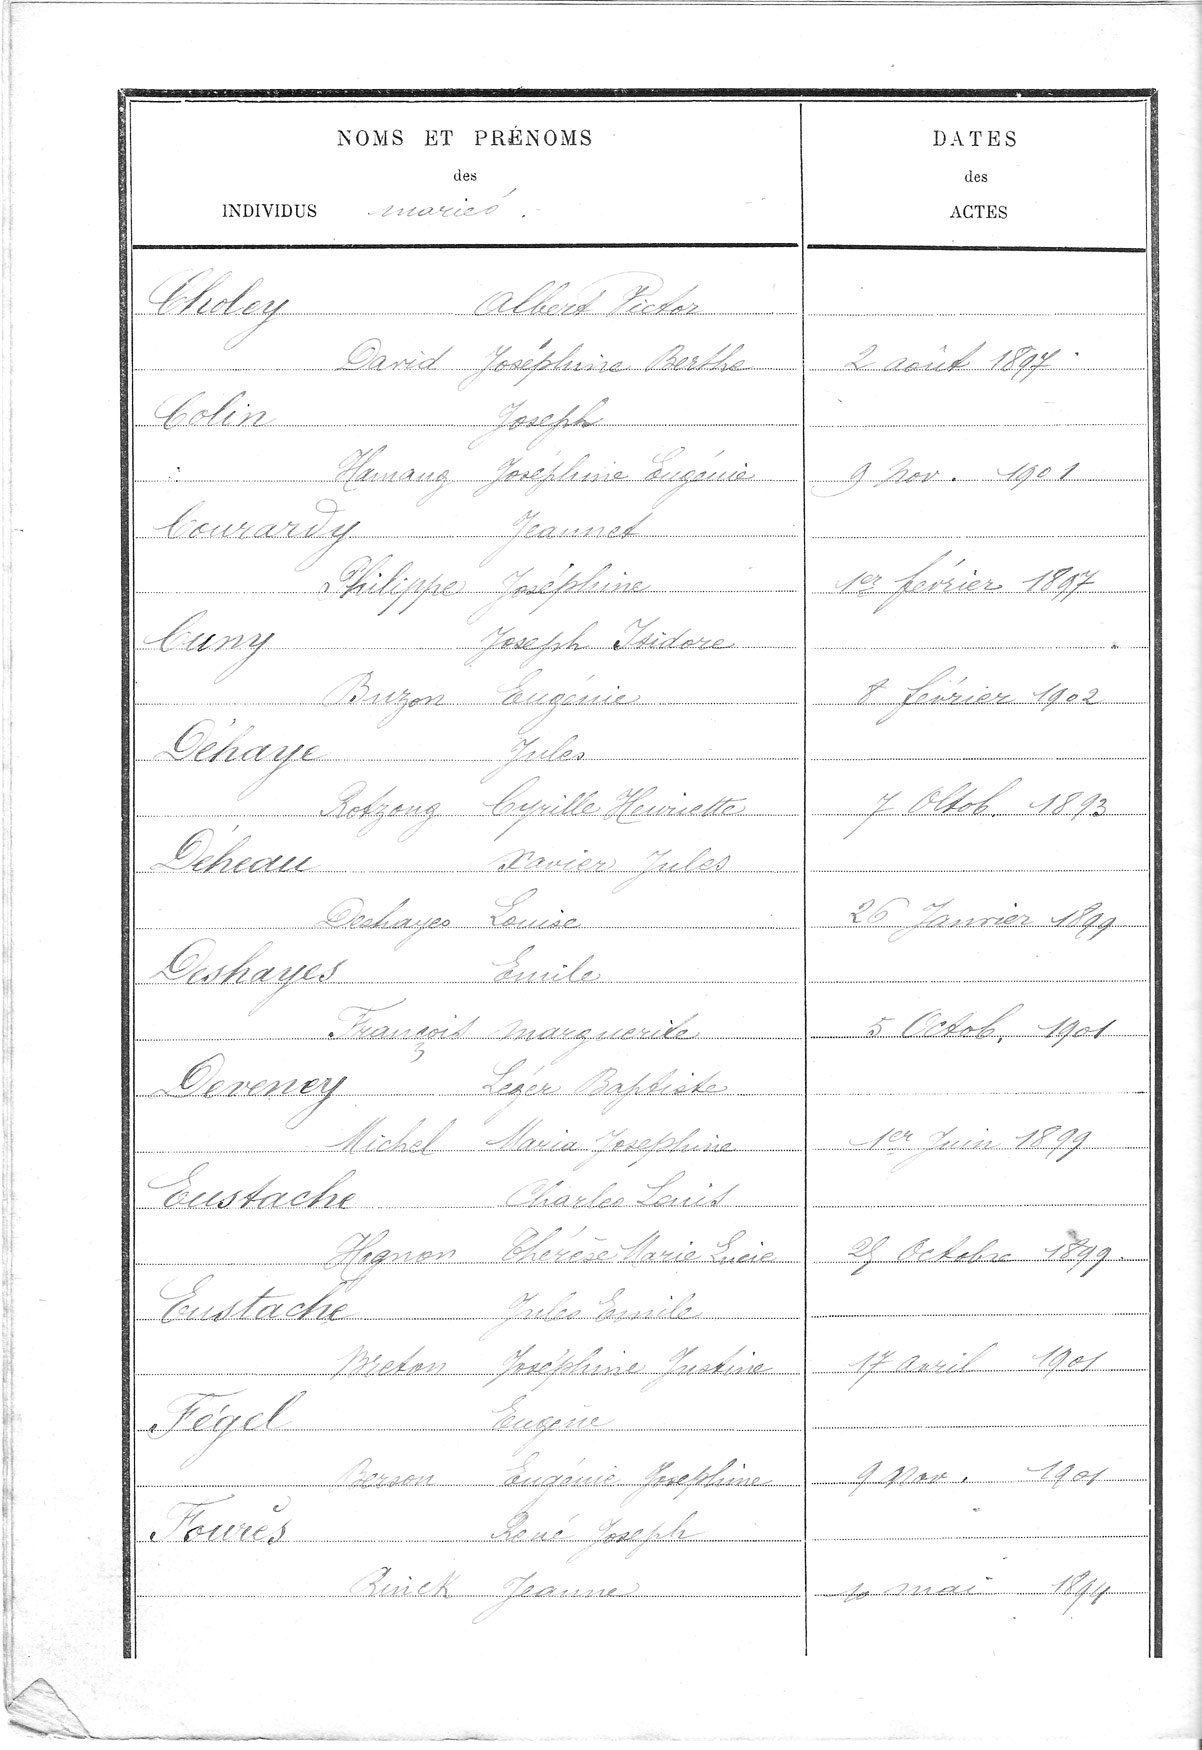 NOMS ET PRÉNOMS
des
INDIVIDUS mariés.
DATES
des
ACTES
Choley Albert Victor
David Joséphine Berthe 2 août 1897
Colin Joseph
Hamang Joséphine Eugénie 9 Nov. 1901
Courardy Jeannet
Philippe Joséphine 1er février 1897
Cuny Joseph Isidore
Buzon Eugénie 8 février 1902
Déhaye Jules
Rotzong Cyrille Henriette 7 Octob. 1893
Déheau Xavier Jules
Deshayes Louise 26 Janvier 1899
Deshayes Emile
François Marguerite 5 Octob. 1901
Deveney Léger Baptiste
Michel Maria Josephine 1er Juin 1899
Eustache Charles Louis
Hognon Thérèse Marie Lucie Octobre 1899.
Eustache Jules Emile
Breton Joséphine Justine 17 avril 1901
Fégel Eugène
Berson Eugénie Josephine 9 Nov. 1901
Fourès René Joseph
Rinck Jeanne 10 mai